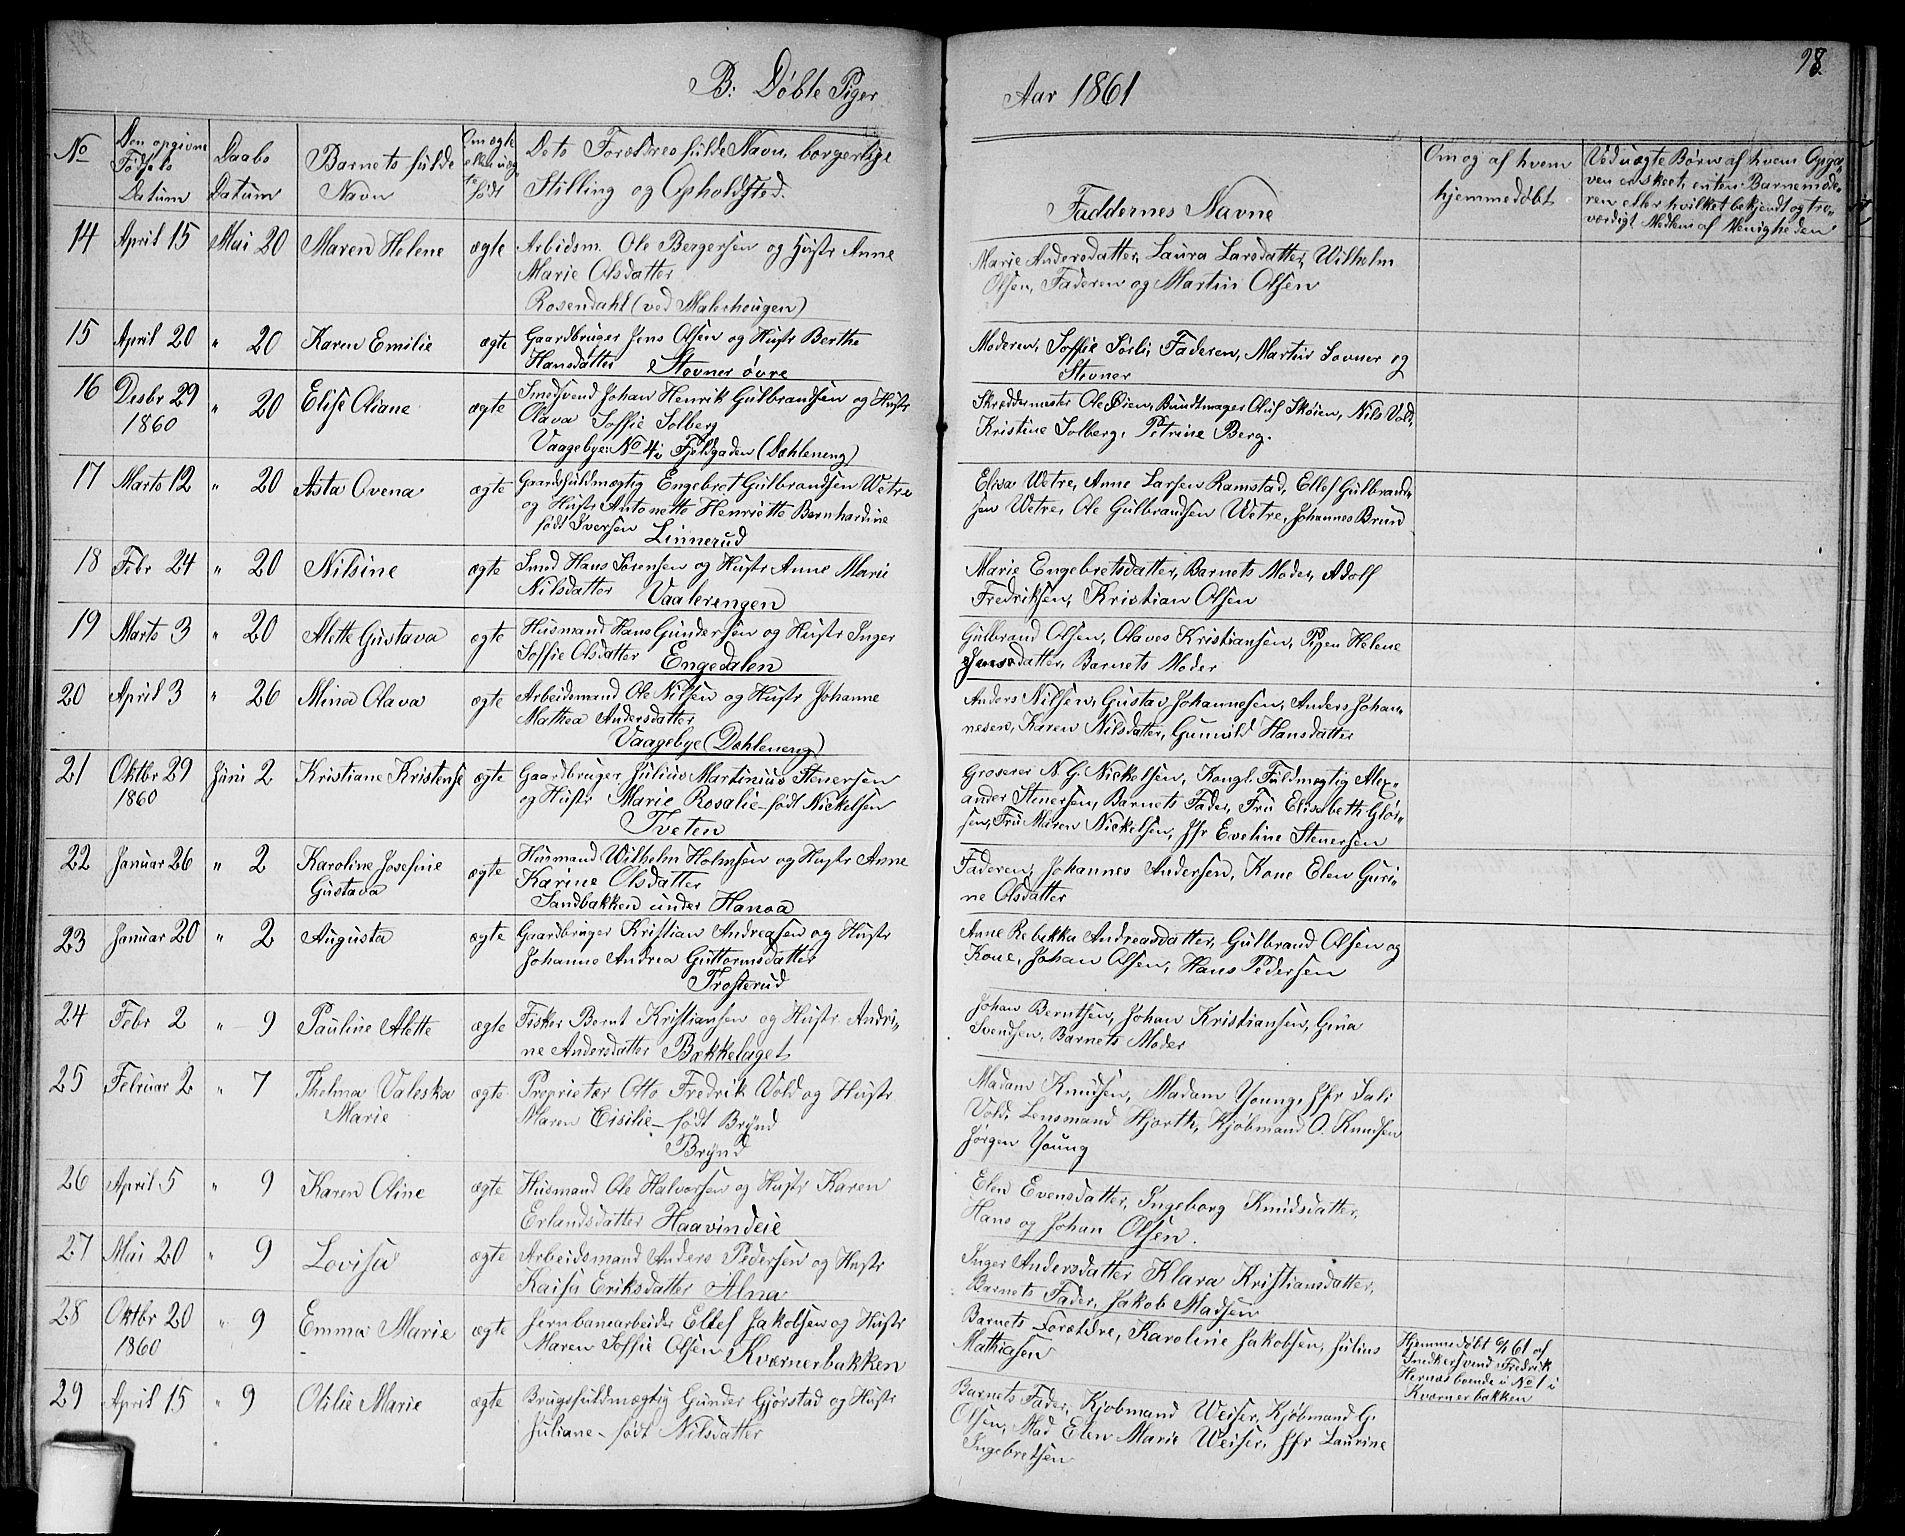 98.
B: Døbte Piger
Aar 1861
No
Den opgivne Fødsels Datum
Daabs Datum
Barnets fulde Navn
Om ægte eller uægte født
Dets Forældres fulde Navn, borgerlige Stilling og Opholdsted.
Faddernes Navne
Om og af hvem hjemmedøbt
Ved uægte Børn af hvem Opgaven er skeet, enten Barnemoderen eller hvilket bekjendt og troværdigt Medlem af Menigheden
14 April 15 Mai 20 Maren Helene ægte Arbidsm. Ole Bergersen og Hustr Anne
Marie Olsdatter
Rosendahl (ved Malerhougen)
Marie Andersdatter, Laura Larsdatter, Wilhelm
Olsen, Faderen og Martin Olsen
15 April 20 " 20 Karen Emilie ægte Gaardbruger Jens Olsen og Hustr Berthe
Hansdatter Stovner øvre
Moderen, Soffie Sørli, Faderen, Martin Sovner og
Stovner
16 Desbr 29 " 20 Elise Oliane ægte Smedsvend Johan Henrik Gulbrandsen og Hustr
1860
Olava Soffie Solberg
Vaagebyen No 4 i Fjeldgaden (Dæhleneng)
Skræddermester Ole Øien, Bundtmager Oluf Skøien, Nils Vold,
Kristine Solberg, Petrine Berg.
17 Marts 12 " 20 Asta Ovena ægte Gaardsfuldmægtig Engebret Gulbrandsen Wetre
og Hustr Antonette Henriette Bernhardine
født Iversen Linnerud
Elisa Wetre, Anne Larsen Ramstad, Ellef Gulbrand-
sen Wetre, Ole Gulbrandsen Wetre, Johannes Brun
18 Febr 24 " 20 Nilsine ægte Smed Hans Sørensen og Hustr Anne Marie
Nilsdatter Vaalerengen
Marie Engebretsdatter, Barnets Moder, Adolf
Fredriksen, Kristian Olsen
19 Marts 3 " 20 Alette Gustava ægte Husmand Hans Gundersen og Hustr Inger
Soffie Olsdatter Engedalen
Gulbrand Olsen, Olaves Kristiansen, Pigen Helene
Jensdatter, Barnets Moder
20 April 3 " 26 Mina Olava ægte Arbeidsmand Ole Nilsen og Hustr Johanne
Mathea Andersdatter
Vaagebye (Dæhleneng)
Anders Nilsen, Gustav Johannesen, Anders Johan-
nesen, Karen Nilsdatter, Gunvild Hansdatter
21 Oktbr 29 Juni 2 Kristiane Kristense ægte Gaardbruger Julius Martinius Stenersen
1860
og Hustr Marie Rosalie født Nickelsen
Tveten
Groserer N. G. Nickelsen, Kongl. Fuldmegtig Alex-
ander Stenersen, Barnets Fader, Fru Elisabeth Glør-
sen, Fru Maren Nickelsen, Jfr Eveline Stenersen
22 Januar 26 " 2 Karoline Josefine ægte Husmand Wilhelm Holmsen og Hustr Anne
Gustava
Karine Olsdatter
Sandbakken under Hanoa
Faderen, Johannes Andersen, Kone Elen Guri-
ne Olsdatter
23 Januar 20 " 2 Augusta ægte Gaardbruger Kristian Andreasen og Hustr
Johanne Andrea Guttormsdatter
Trosterud
Anne Rebekka Andreasdatter, Gulbrand Olsen og
Kone, Johan Olsen, Hans Pedersen
24 Febr 2 " 9 Pauline Alette ægte Fisker Bernt Kristiansen og Hustr Andri-
ne Andersdatter Bækkelaget
Johan Berntsen, Johan Kristiansen, Gina
Svendsen, Barnets Moder
25 Februar 2 " 7 Thelma Valeska ægte Proprietær Otto Fredrik Vold og Hustr
Marie
Maren Cisilie født Brynd
Brynd
Madam Knudsen, Madam Young, Jfr Sali
Vold, Lensmand Hjorth, Kjøbmand O. Knudsen
Jørgen Young
26 April 5 " 9 Karen Oline ægte Husmand Ole Halvorsen og Hustr Karen
Erlandsdatter Haavindeie
Elen Evensdatter, Ingeborg Knudsdatter,
Hans og Johan Olsen.
27 Mai 20 " 9 Lovisa ægte Arbeidsmand Anders Pedersen og Hustr
Kaisa Eriksdatter Alna
Inger Andersdatter Klara Kristiansdatter,
Barnets Fader, Jakob Madsen
28 Oktbr 20 " 9 Emma Marie ægte Jernbanearbeider Ellef Jakobsen og Hustr
1860
Maren Soffie Olsen Kværnerbakken
Barnets Forældre, Karoline Jakobsen, Julius
Mathiasen
Hjemmedøbt 61 af
Snedkersvend Fredrik
Hernæs boende i No 1 i
Kværnerbakken
29 April 15 " 9 Otilie Marie ægte Brugsfuldmægtig Gunder Gjørstad og Hustr
Juliane født Nilsdatter
Barnets Fader, Kjøbmand Weiser, Kjøbmand G.
Olsen, Mad Elen Marie Weiser, Jfr Laurine
Ingebretsen